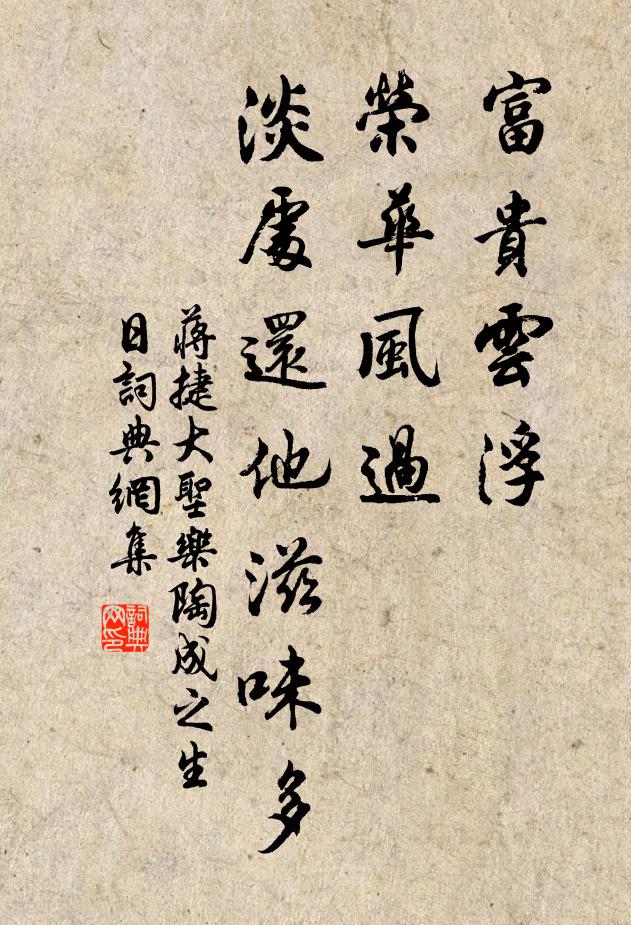 富貴雲浮
榮華風過
淡處還他滋味多
蔣捷大聖樂陶成之生
日詞典網集
詞典
网印